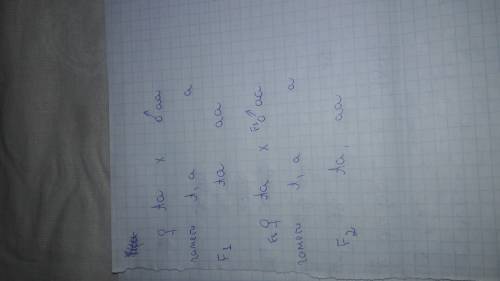 ♀ Aa x ♂ aa
гаметы A, a a
F1 Aa aa
F1 ♀ Aa x F1 ♂ aa
гаметы A, a a
F2 Aa, aa